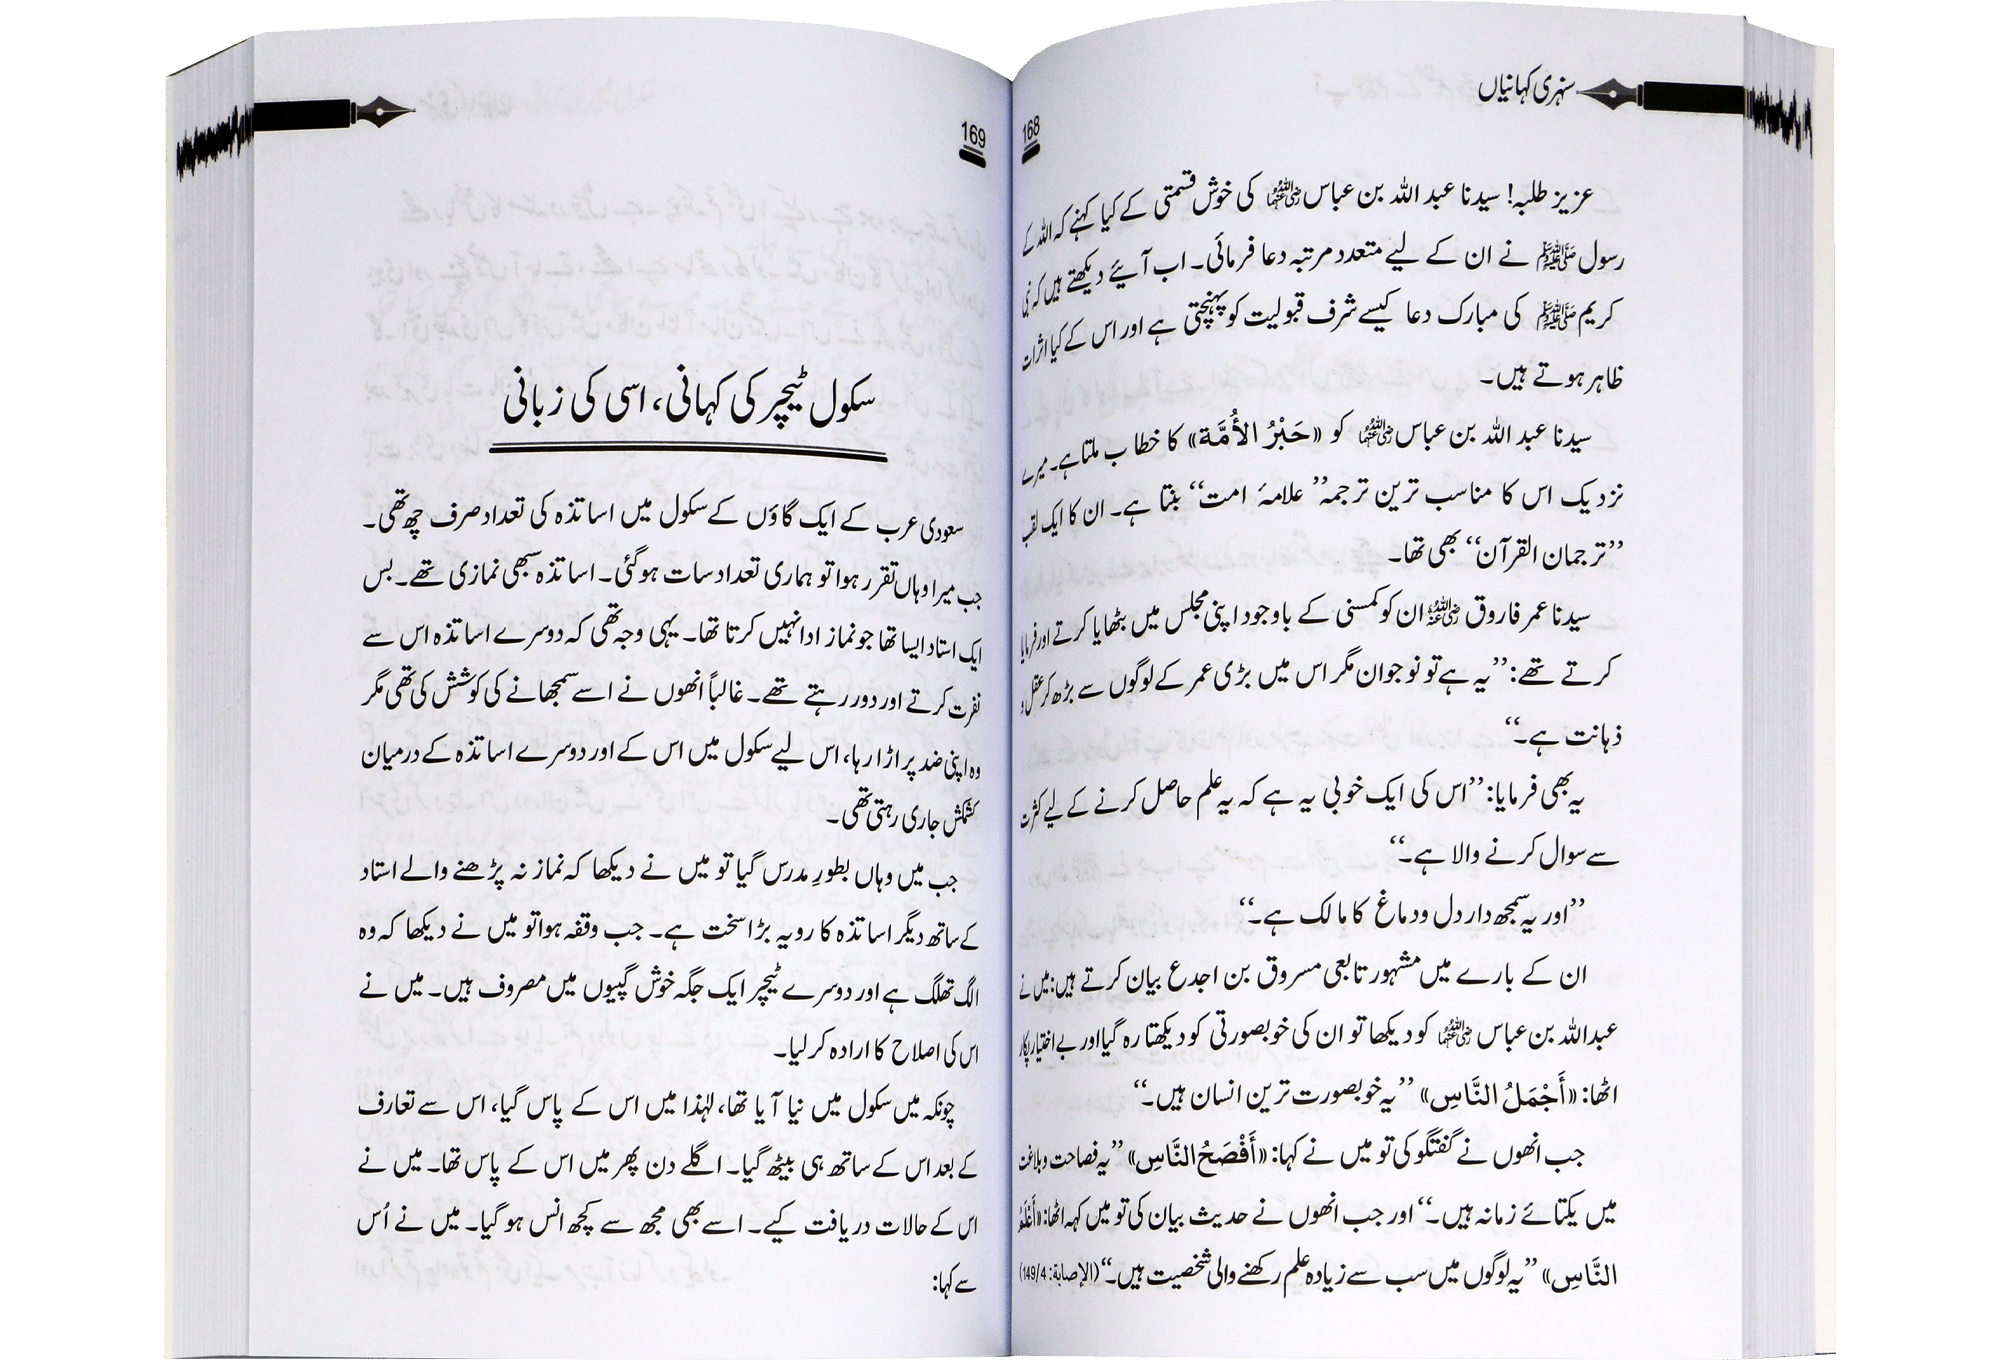 سنہری کہانیاں
168
عزیز طلبہ! سیدنا عبد اللہ بن عباس رضی اللہ عنہما کی خوش قسمتی کے کیا کہنے کہ اللہ کے
رسول ﷺ نے ان کے لیے متعدد مرتبہ دعا فرمائی۔ اب آیئے دیکھتے ہیں کہ نبی
کریم ﷺ کی مبارک دعا کیسے شرف قبولیت کو پہنچتی ہے اور اس کے کیا اثرات
ظاہر ہوتے ہیں۔
سیدنا عبد اللہ بن عباس رضی اللہ عنہما کو «حَبْرُ الأُمَّة» کا خطاب ملتا ہے۔ میرے
نزدیک اس کا مناسب ترین ترجمہ ’’علامۂ امت‘‘ بنتا ہے۔ ان کا ایک لقب
’’ترجمان القرآن‘‘ بھی تھا۔
سیدنا عمر فاروق رضی اللہ عنہ ان کو کمسنی کے باوجود اپنی مجلس میں بٹھایا کرتے اور فرمایا
کرتے تھے: ’’یہ ہے تو نوجوان مگر اس میں بڑی عمر کے لوگوں سے بڑھ کر عقل و
ذہانت ہے۔‘‘
یہ بھی فرمایا: ’’اس کی ایک خوبی یہ ہے کہ یہ علم حاصل کرنے کے لیے کثرت
سے سوال کرنے والا ہے۔‘‘
’’اور یہ سمجھ دار دل و دماغ کا مالک ہے۔‘‘
ان کے بارے میں مشہور تابعی مسروق بن اجدع بیان کرتے ہیں: میں نے
عبد اللہ بن عباس رضی اللہ عنہما کو دیکھا تو ان کی خوبصورتی کو دیکھتا رہ گیا اور بے اختیار پکار
اٹھا: «أَجْمَلُ النَّاسِ» ’’یہ خوبصورت ترین انسان ہیں۔‘‘
جب انھوں نے گفتگو کی تو میں نے کہا: «أَفْصَحُ النَّاسِ» ’’یہ فصاحت و بلاغت
میں یکتائے زمانہ ہیں۔‘‘ اور جب انھوں نے حدیث بیان کی تو میں کہہ اٹھا: «أَعْلَمُ
النَّاسِ» ’’یہ لوگوں میں سب سے زیادہ علم رکھنے والی شخصیت ہیں۔‘‘ (الإصابة: 149/4)
169
سکول ٹیچر کی کہانی، اسی کی زبانی
سعودی عرب کے ایک گاؤں کے سکول میں اساتذہ کی تعداد صرف چھ تھی۔
جب میرا وہاں تقرر ہوا تو ہماری تعداد سات ہوگئی۔ اساتذہ سبھی نمازی تھے۔ بس
ایک استاد ایسا تھا جو نماز ادا نہیں کرتا تھا۔ یہی وجہ تھی کہ دوسرے اساتذہ اس سے
نفرت کرتے اور دور رہتے تھے۔ غالباً انھوں نے اسے سمجھانے کی کوشش کی تھی مگر
وہ اپنی ضد پر اڑا رہا، اس لیے سکول میں اس کے اور دوسرے اساتذہ کے درمیان
کشمکش جاری رہتی تھی۔
جب میں وہاں بطورِ مدرس گیا تو میں نے دیکھا کہ نماز نہ پڑھنے والے استاد
کے ساتھ دیگر اساتذہ کا رویہ بڑا سخت ہے۔ جب وقفہ ہوا تو میں نے دیکھا کہ وہ
الگ تھلگ ہے اور دوسرے ٹیچر ایک جگہ خوش گپیوں میں مصروف ہیں۔ میں نے
اس کی اصلاح کا ارادہ کر لیا۔
چونکہ میں سکول میں نیا آیا تھا، لہٰذا میں اس کے پاس گیا، اس سے تعارف
کے بعد اس کے ساتھ ہی بیٹھ گیا۔ اگلے دن پھر میں اس کے پاس تھا۔ میں نے
اس کے حالات دریافت کیے۔ اسے بھی مجھ سے کچھ انس ہو گیا۔ میں نے اُس
سے کہا: